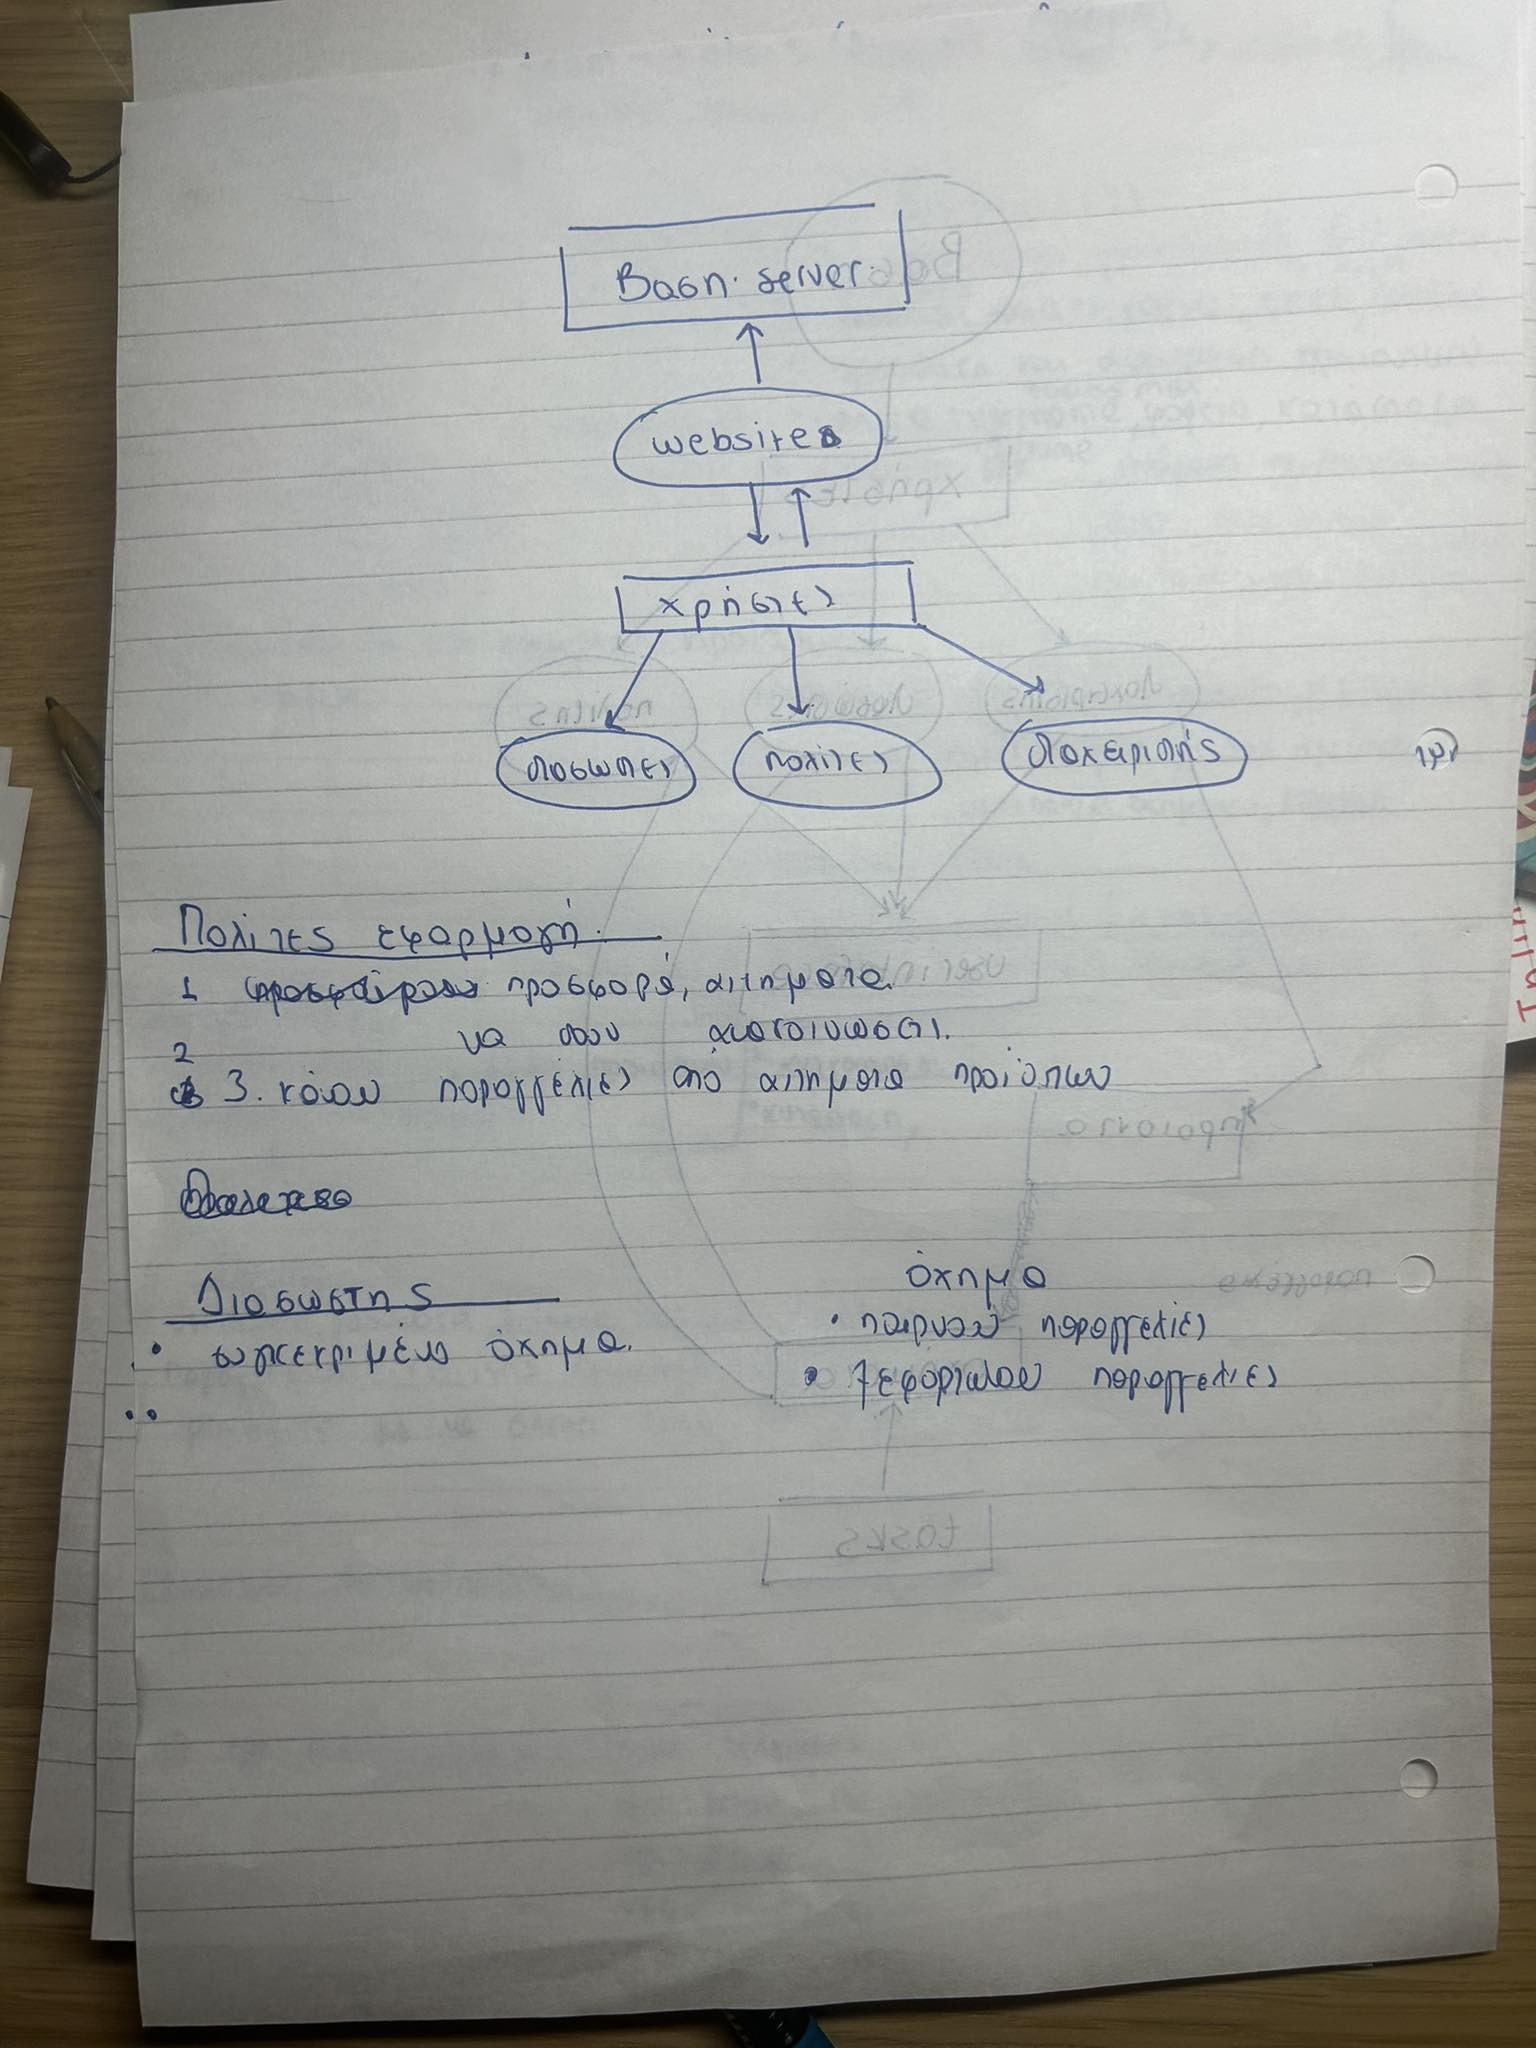 Βαση. server.
website
χρήστες
διασώστες πολίτες διαχειριστής
Πολίτες εφαρμογή.
1 προσφορά, αιτηματα.
2 να δουν ανακοινώσεις.
3. κάνουν παραγγελίες από αιτηματα προϊόντων
Διασωστης
• συγκεκριμένο όχημα.
όχημα
• παιρνουν παραγγελίες
• ξεφορτώνουν παραγγελίες